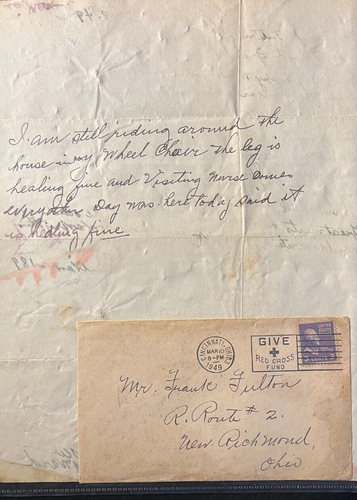 I am still riding around the
house in my Wheel Chair The leg is
healing fine and Visiting Nurse comes
every other Day was here today said it
is healing fine
CINCINNATI, OHIO
MAR 10
8-PM
1949
GIVE
RED CROSS
FUND
UNITED STATES
Mr. Frank Fulton
R. Route # 2.
New Richmond,
Ohio